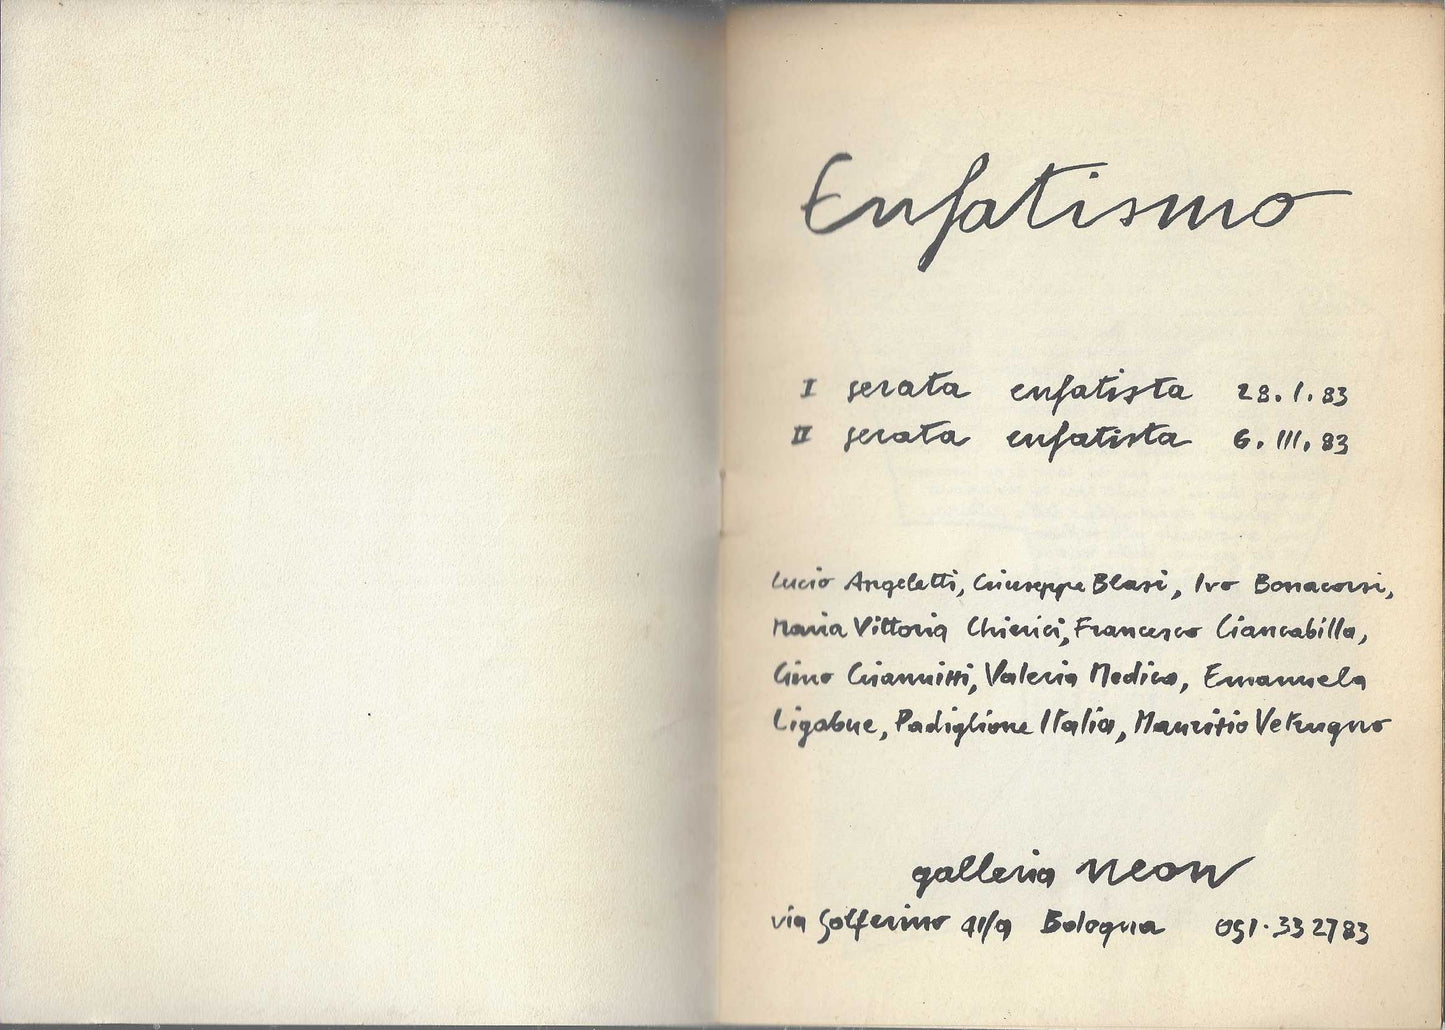 Enfatismo
I serata enfatista 28.1.83
II serata enfatista 6.III.83
Lucio Angeletti, Giuseppe Blasi, Ivo Bonacorsi,
Maria Vittoria Chierici, Francesco Ciancabilla,
Gino Gianuizzi, Valeria Medica, Emanuela
Ligabue, Padiglione Italia, Maurizio Vetrugno
galleria neon
via Solferino 41/a Bologna 051·332783